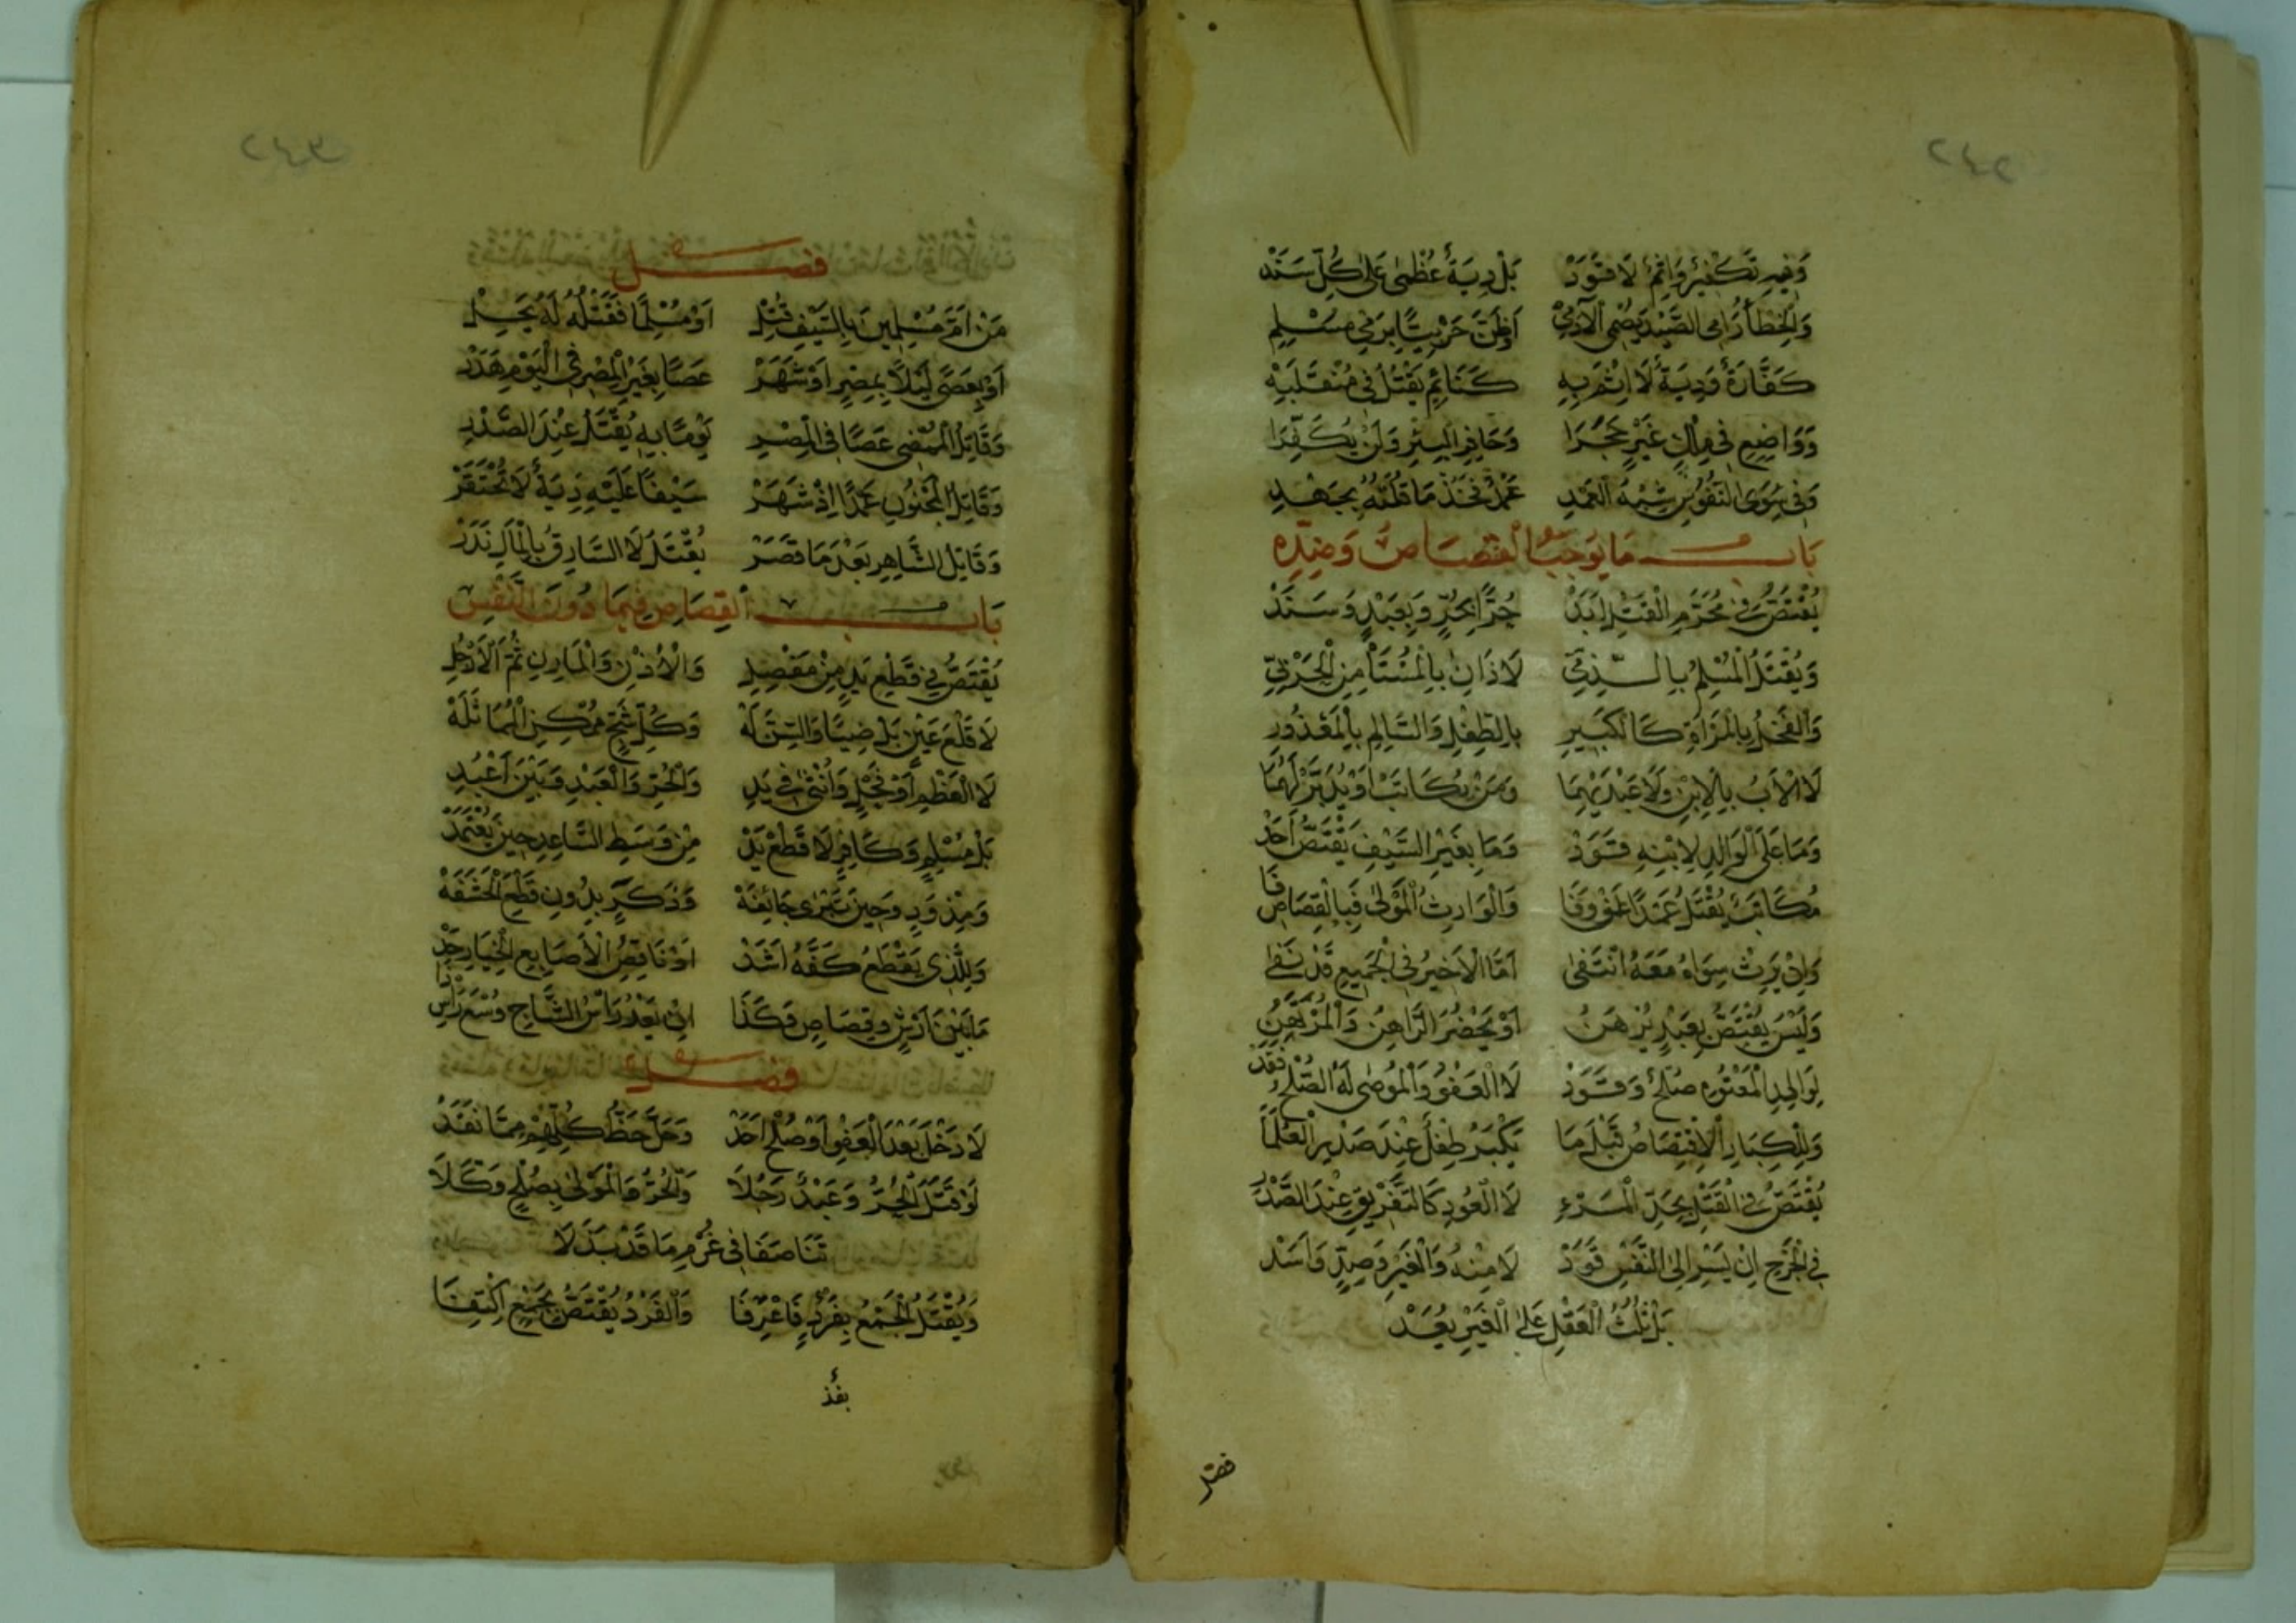 ٢٤٢
وَفِيهِ تَكْفِيرٌ وَإِثْمٌ لَا قَوَدْ بَلْ دِيَةٌ عُظْمَى عَلَى كُلٍّ سَنَدْ
وَالْخَطَأُ رَامِي الصَّيْدِ يُصْمِي الْآدَمِيْ أَوْ ظَنَّ حَرْبِيًّا يَرَى فِي مُسْلِمِ
كَفَّارَةٌ وَدِيَةٌ لَا إِثْمَ بِهِ كَنَائِمٍ يَقْتُلُ فِي مُنْقَلَبِهْ
وَوَاضِعٍ فِي مِلْكِ غَيْرٍ حَجَرَا وَحَافِرِ الْبِئْرِ وَلَنْ يُكَفِّرَا
وَفِي سِوَى النُّفُوسِ شِبْهُ الْعَمْدِ عَمْدٌ فَخُذْ مَا قُلْتُهُ بِجَهْدِ
بَابُ مَا يُوجِبُ الْقِصَاصَ وَضِدِّهِ
يُقْتَصُّ فِي مُحَرَّمِ الْقَتْلِ أَبَدْ حُرًّا بِحُرٍّ وَبِعَبْدٍ وَسَنَدْ
وَيُقْتَلُ الْمُسْلِمُ بِالذِّمِّيِّ لَا ذَانِ بِالْمُسْتَأْمِنِ الْحَرْبِيِّ
وَالْفَحْلُ بِالْمَرْأَةِ كَالْكَبِيرِ بِالطِّفْلِ وَالسَّالِمِ بِالْمَعْذُورِ
لَا الْأَبُ بِالْإِبْنِ وَلَا عَبْدَيْهِمَا وَمَنْ يُكَاتَبْ أَوْ يُدَبَّرْ لَهُمَا
وَمَا عَلَى الْوَالِدِ لِابْنِهِ قَوَدْ وَمَا بِغَيْرِ السَّيْفِ يَقْتَصُّ أَحَدْ
مُكَاتَبٌ يُقْتَلُ عَمْدًا عَنْ وَفَا وَالْوَارِثُ الْمَوْلَى فَبِالْقِصَاصِ فَا
وَإِنْ يَرِثْ سِوَاءُ مَعَهُ انْتَفَى أَمَّا الْأَخِيرُ فِي الْجَمِيعِ قَدْ نَفَى
وَلَيْسَ يُقْتَصُّ بِعَبْدٍ يُرْهَنُ أَوْ يَحْضُرَ الرَّاهِنُ وَالْمُرْتَهِنُ
لِوَالِدِ الْمَعْتُوهِ صُلْحٌ وَقَوَدْ لَا الْعَفْوُ وَالْمُوصَى لَهُ الصُّلْحُ فَقَدْ
وَلِلْكِبَارِ الْإِقْتِصَاصُ قَبْلَ مَا يَكْبَرُ طِفْلٌ عِنْدَ صَدْرِ الْعُلَمَا
يُقْتَصُّ فِي الْقَتْلِ بِحَدِّ الْمَرْءِ لَا الْعُودِ كَالتَّفْرِيقِ عِنْدَ الصَّدْرِ
فِي الْجَرْحِ إِنْ يَسْرِ إِلَى النَّفْسِ قَوَدْ لَا مِنْهُ وَالْغَيْرِ وَصِدٍّ وَأَسَدْ
بَلْ ثُلُثُ الْعَقْلِ عَلَى الْغَيْرِ يُعَدْ
فصل
٢٤٣
فصل
مَنْ أَمَّ مُسْلِمِينَ بِالسَّيْفِ قُتِلْ أَوْ مُسْلِمًا فَقَتْلُهُ لَهُ يَحِلْ
أَوْ بِعَصًى لَيْلًا بِمِصْرٍ أَوْ شَهَرْ عَصًا بِغَيْرِ الْمِصْرِ فِي الْيَوْمِ هَدَرْ
وَقَاتِلُ الْمُنْضِي عَصًا فِي الْمِصْرِ يَوْمًا بِهِ يُقْتَلُ عِنْدَ الصَّدْرِ
وَقَاتِلُ الْمَجْنُونِ عَمْدًا إِذْ شَهَرْ سَيْفًا عَلَيْهِ دِيَةٌ لَا تُحْتَقَرْ
وَقَاتِلُ الشَّاهِرِ بَعْدَ مَا قَصَرْ يُقْتَلُ لَا السَّارِقُ بِالْمَالِ نَدَرْ
بَابُ الْقِصَاصِ فِيمَا دُونَ النَّفْسِ
يُقْتَصُّ فِي قَطْعِ يَدٍ مِنْ مَفْصِلِ وَالْأُذْنِ وَالْمَارِنِ ثُمَّ الْأَرْجُلِ
لَا قَلْعَ عَيْنٍ بَلْ ضِيًّا وَالسِّنَّ لَهْ وَكُلِّ شَجٍّ مُمْكِنِ الْمُمَاثَلَهْ
لَا الْعَظْمِ أَوْ فَحْلٍ وَأُنْثَى فِي يَدِ وَالْحُرِّ وَالْعَبْدِ وَبَيْنَ أَعْبُدِ
بَلْ مُسْلِمٍ وَكَافِرٍ لَا قَطْعَ يَدْ مِنْ وَسَطِ السَّاعِدِ حِينَ يُعْتَمَدْ
وَمِذْوَدٍ وَحِينَ تَبْرَى جَائِفَهْ وَذَكَرٍ بِدُونِ قَطْعِ الْحَشَفَهْ
وَلِلَّذِي يَقْطَعُ كَفَّهُ أَشَدْ أَوْ نَاقِصُ الْأَصَابِعِ الْخِيَارَ جُدْ
مَا بَيْنَ أَرْشٍ وَقِصَاصٍ وَكَذَا إِنْ يَعْدُ رَأْسُ الشَّاجِّ وُسْعَ رَأْسِ ذَا
فصل
لَا دَخْلَ بَعْدَ الْعَفْوِ أَوْ صُلْحِ أَحَدْ وَحَلَّ حَظُّ كُلِّهِمْ مِمَّا نَقَدْ
لَوْ قَتَلَ الْحُرُّ وَعَبْدٌ رَجُلَا وَالْحُرُّ وَالْمَوْلَى بِصُلْحٍ وَكَّلَا
تَنَاصَفَا فِي غُرْمِ مَا قَدْ بَذَلَا
وَيُقْتَلُ الْجَمْعُ بِفَرْدٍ فَاعْرِفَا وَالْفَرْدُ يُقْتَصُّ بِجَمْعٍ اكْتِفَا